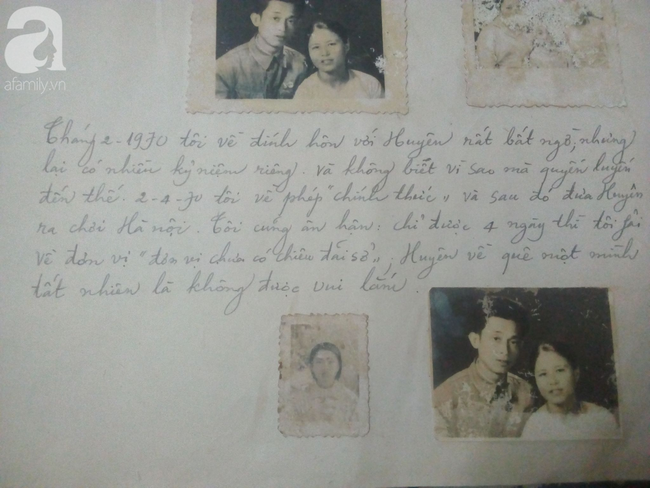 a
afamily.vn
Tháng 2-1970 tôi về đính hôn với Huyên rất bất ngờ, nhưng
lại có nhiều kỷ niệm riêng. và không biết vì sao mà quyến luyến
đến thế. 2-4-70 tôi về phép "chính thức" và sau đó đưa Huyên
ra chơi Hà nội. Tôi cũng ân hận: chỉ được 4 ngày thì tôi fải
về đơn vị "đơn vị chưa có chiêu đãi sở", Huyên về quê một mình
tất nhiên là không được vui lắm.